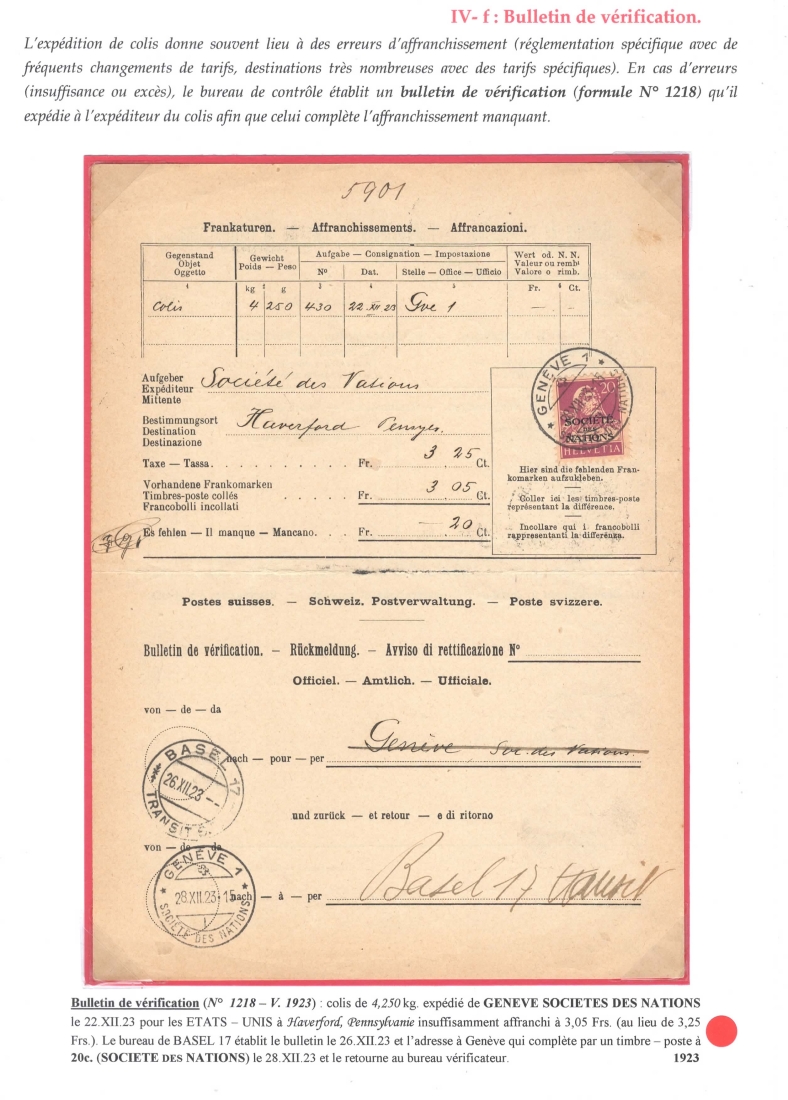 IV- f : Bulletin de vérification.
L'expédition de colis donne souvent lieu à des erreurs d'affranchissement (réglementation spécifique avec de
fréquents changements de tarifs, destinations très nombreuses avec des tarifs spécifiques). En cas d'erreurs
(insuffisance ou excès), le bureau de contrôle établit un bulletin de vérification (formule N° 1218) qu'il
expédie à l'expéditeur du colis afin que celui complète l'affranchissement manquant.
5901
Frankaturen. — Affranchissements. — Affrancazioni.
Gegenstand Objet Oggetto
Gewicht Poids — Peso
Aufgabe — Consignation — Impostazione
Wert od. N. N. Valeur ou rembt Valore o rimb.
N° Dat. Stelle — Office — Ufficio
1 2 3 4 5 6
kg g Fr. Ct.
Colis 4 250 430 22 XII 23 Gve 1 — —
Aufgeber
Expéditeur Société des Nations
Mittente
Bestimmungsort
Destination Haverford
Destinazione
Taxe — Tassa. Fr. 3 25 Ct.
Vorhandene Frankomarken
Timbres-poste collés Fr. 3 05 Ct.
Francobolli incollati
Es fehlen — Il manque — Mancano. Fr. — 20 Ct.
GENÈVE 1
20
SOCIÉTÉ
DES
NATIONS
HELVETIA
Hier sind die fehlenden Fran-
komarken aufzukleben.
Coller ici les timbres-poste
représentant la différence.
Incollare qui i francobolli
rappresentanti la differenza.
Postes suisses. — Schweiz. Postverwaltung. — Poste svizzere.
Bulletin de vérification. — Rückmeldung. — Avviso di rettificazione N°
Officiel. — Amtlich. — Ufficiale.
von — de — da
BASEL 17
26.XII.23
TRANSIT
nach — pour — per Genève Soc. des Nations
und zurück — et retour — e di ritorno
von — de — da
GENÈVE 1
28.XII.23-15
SOCIÉTÉ DES NATIONS
nach — à — per Basel 17 transit
Bulletin de vérification (N° 1218 – V. 1923) : colis de 4,250 kg. expédié de GENEVE SOCIETES DES NATIONS
le 22.XII.23 pour les ETATS – UNIS à Haverford, Pennsylvanie insuffisamment affranchi à 3,05 Frs. (au lieu de 3,25
Frs.). Le bureau de BASEL 17 établit le bulletin le 26.XII.23 et l'adresse à Genève qui complète par un timbre – poste à
20c. (SOCIETE DES NATIONS) le 28.XII.23 et le retourne au bureau vérificateur. 1923